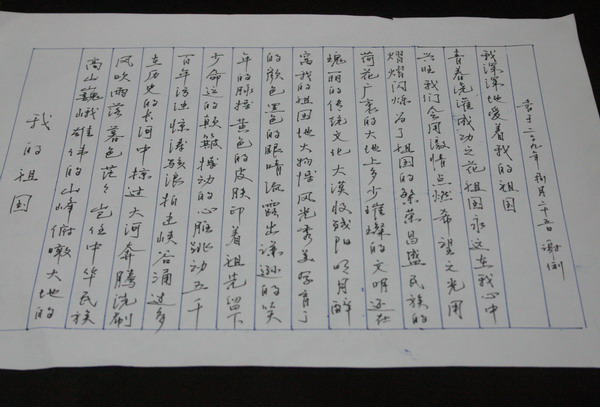 我的祖国
高山巍峨雄伟的山峰俯瞰大地的
风吹雨落暮色茫茫屹立中华民族
在历史的长河中掠过大河奔腾洗刷
百年污浊惊涛骇浪拍击峡谷涌过多
少命运的颠簸搏动的心脏跳动五千
年的脉搏黄色的皮肤印着祖先留下
的颜色黑色的眼睛流露出谦逊的笑
窝我的祖国地大物博风光秀美孕育了
瑰丽的传统文化大漠收残阳明月醉
荷花广袤的大地上多少璀璨的文明还在
熠熠闪烁为了祖国的繁荣昌盛民族的
兴旺我们会用激情点燃希望之光用
青春浇灌成功之花祖国永远在我心中
我深深地爱着我的祖国
书于二〇〇九年捌月二十五日谢